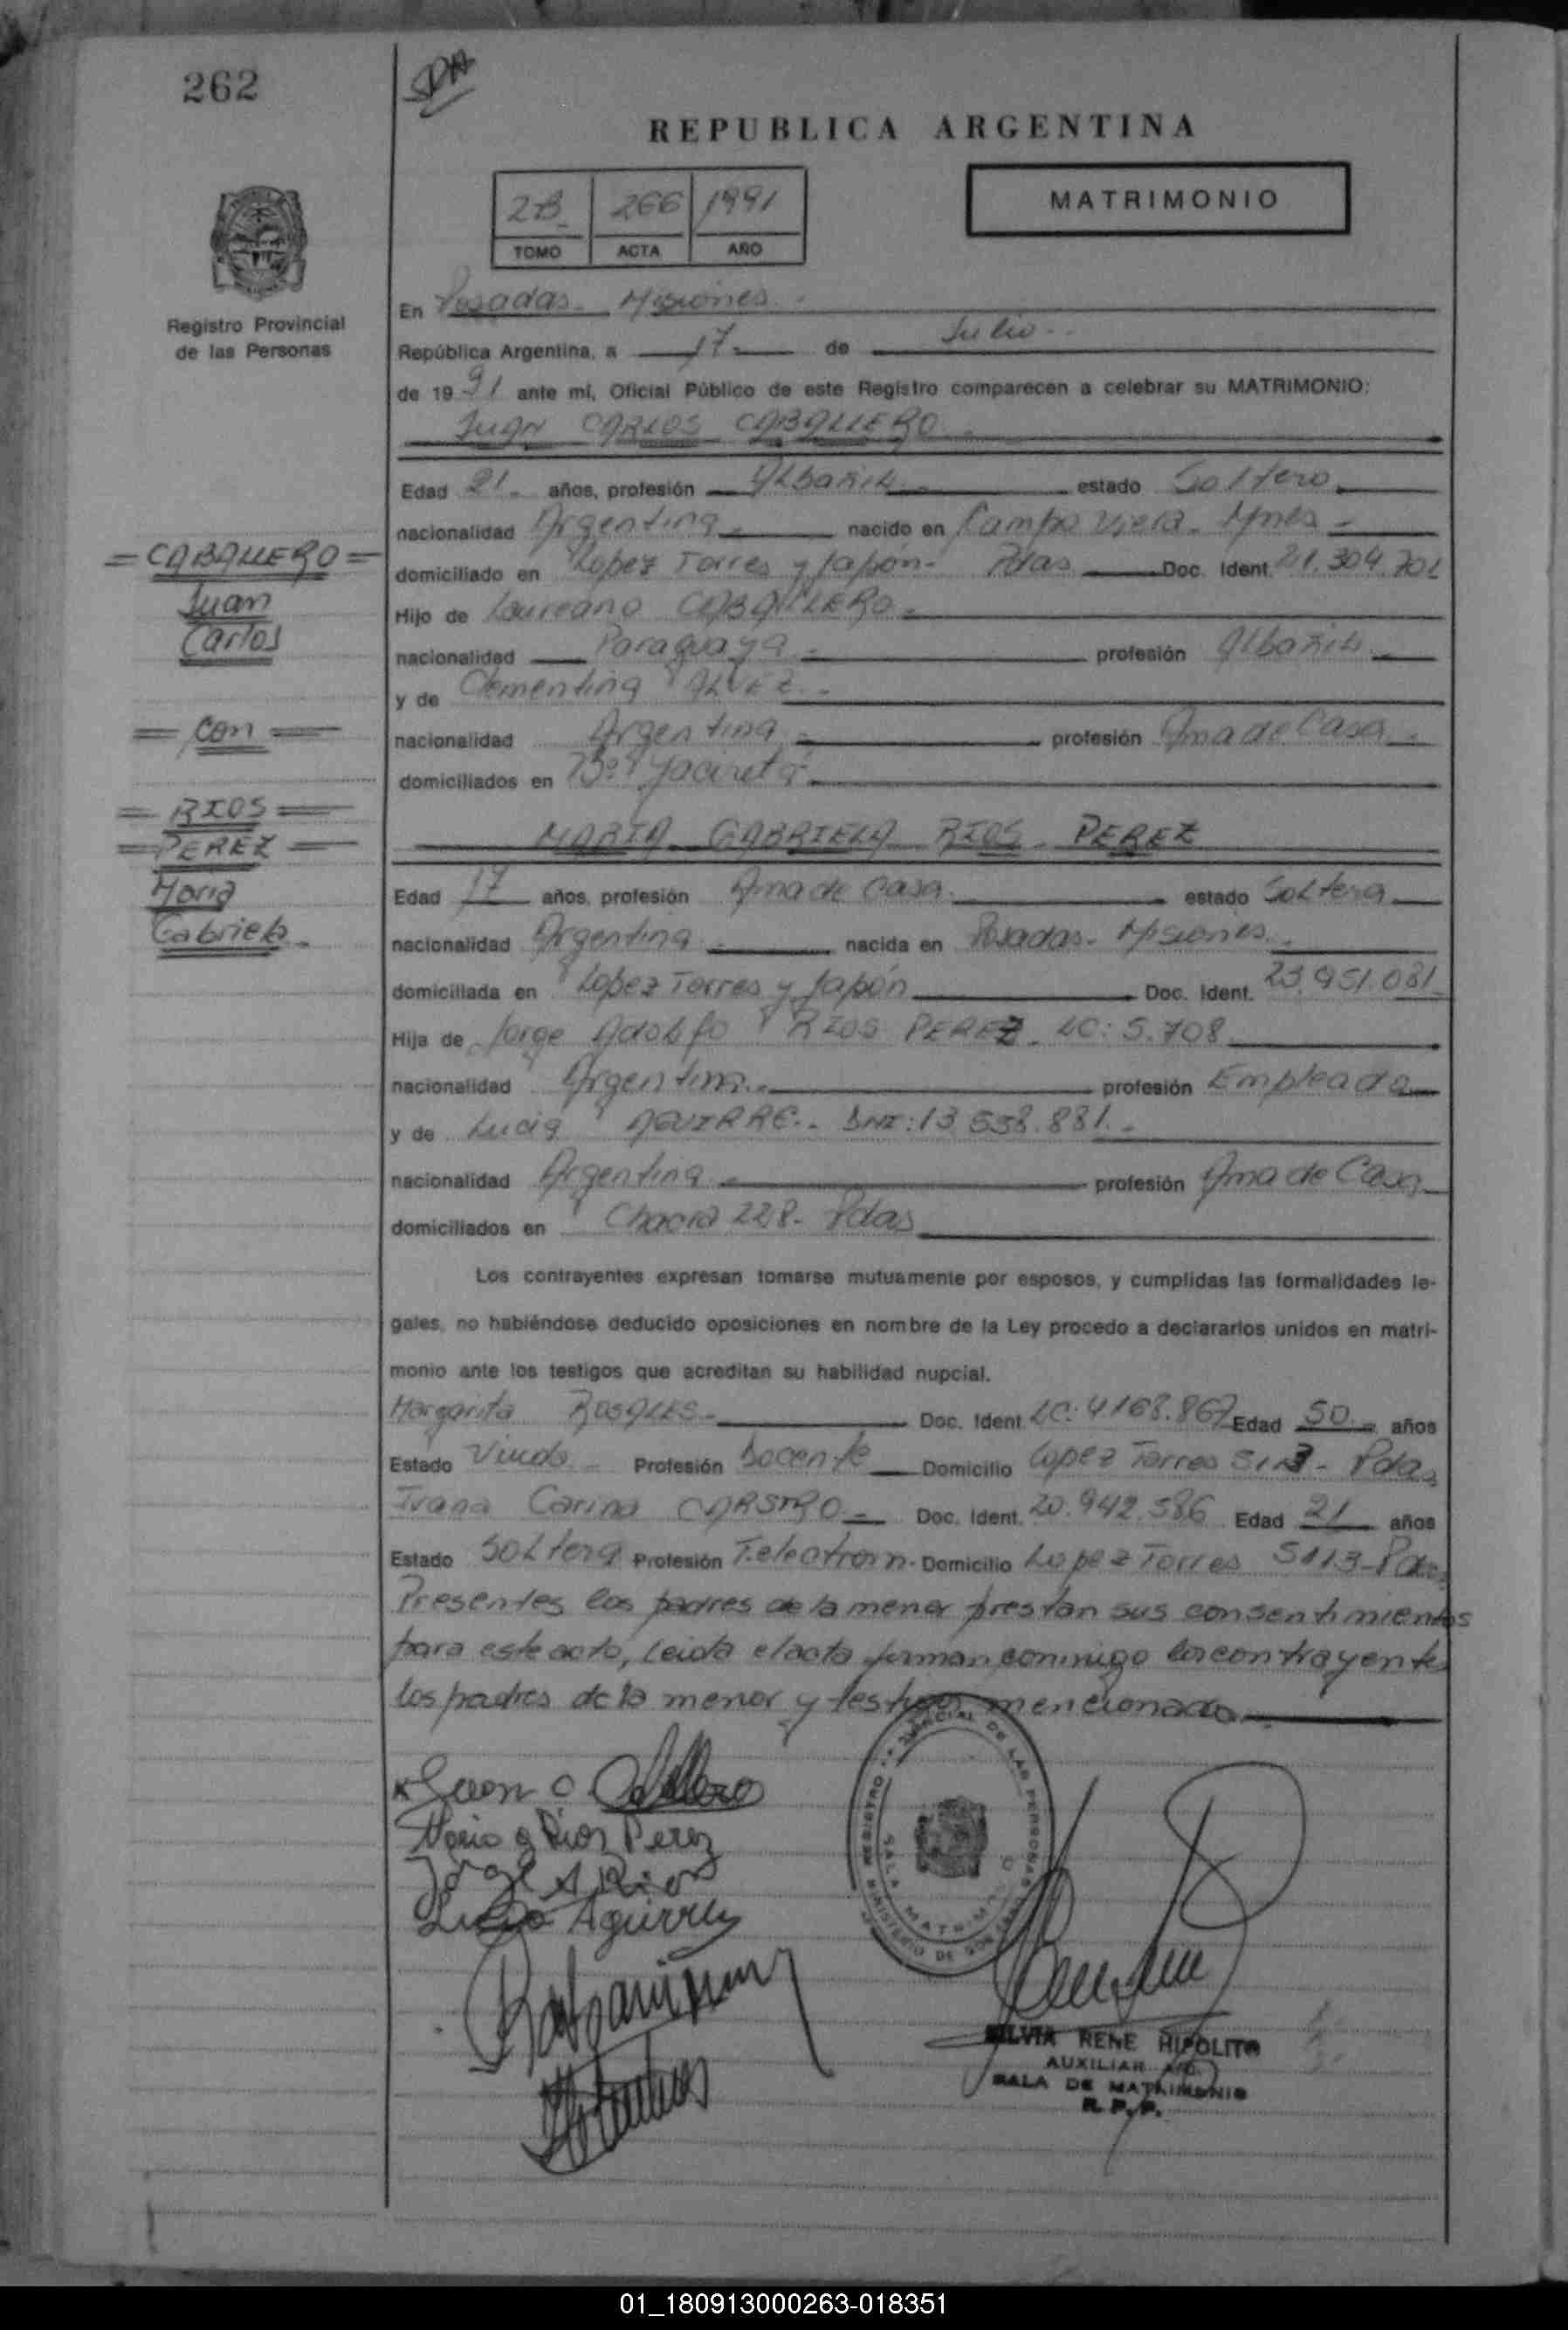 262
SDA
REPUBLICA ARGENTINA
2B 266 1991
TOMO ACTA AÑO
MATRIMONIO
Registro Provincial
de las Personas
En Posadas - Misiones.
República Argentina, a 17 de Julio
de 1991 ante mí, Oficial Público de este Registro comparecen a celebrar su MATRIMONIO:
JUAN CARLOS CABALLERO
Edad 21 años, profesión Albañil estado Soltero
nacionalidad Argentina nacido en Campo Viera - Mnes
domiciliado en Lopez Torres y Japón - Pdas Doc. Ident. 21.304.701
Hijo de Laureano CABALLERO
nacionalidad Paraguaya profesión Albañil
y de Clementina ALVEZ
nacionalidad Argentina profesión Ama de Casa
domiciliados en Bº Yacireta
= CABALLERO =
Juan
Carlos
= Con =
= RIOS =
= PEREZ =
Maria
Gabriela
MARIA GABRIELA RIOS PEREZ
Edad 17 años, profesión Ama de Casa estado Soltera
nacionalidad Argentina nacida en Posadas - Misiones
domiciliada en Lopez Torres y Japón Doc. Ident. 23.951.081
Hija de Jorge Adolfo RIOS PEREZ - LC: 5.708
nacionalidad Argentina profesión Empleado
y de Lucia AGUIRRE - DNI: 13.538.881
nacionalidad Argentina profesión Ama de Casa
domiciliados en Chacra 228 - Pdas
Los contrayentes expresan tomarse mutuamente por esposos, y cumplidas las formalidades le-
gales, no habiéndose deducido oposiciones en nombre de la Ley procedo a declararlos unidos en matri-
monio ante los testigos que acreditan su habilidad nupcial.
Margarita ROSALES Doc. Ident. LC: 4168.867 Edad 50 años
Estado Viuda Profesión Docente Domicilio Lopez Torres - Pdas
Ivana Carina Doc. Ident. 20.942.586 Edad 21 años
Estado Soltera Profesión Domicilio Lopez Torres 5113 - Pdas
Presentes los padres de la menor prestan sus consentimientos
para este acto, leida el acta firman conmigo los contrayentes
los padres de la menor y testigos mencionados
Juan C Caballero
Maria G Rios Perez
Jorge A Rios
Lucia Aguirre
SILVIA RENE HIPOLITO
AUXILIAR
SALA DE MATRIMONIO
R. P. P.
01_180913000263-018351